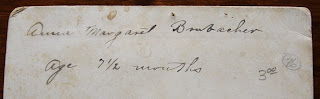 Anna Margaret Brubacher
age 7 1/2 months
3.00